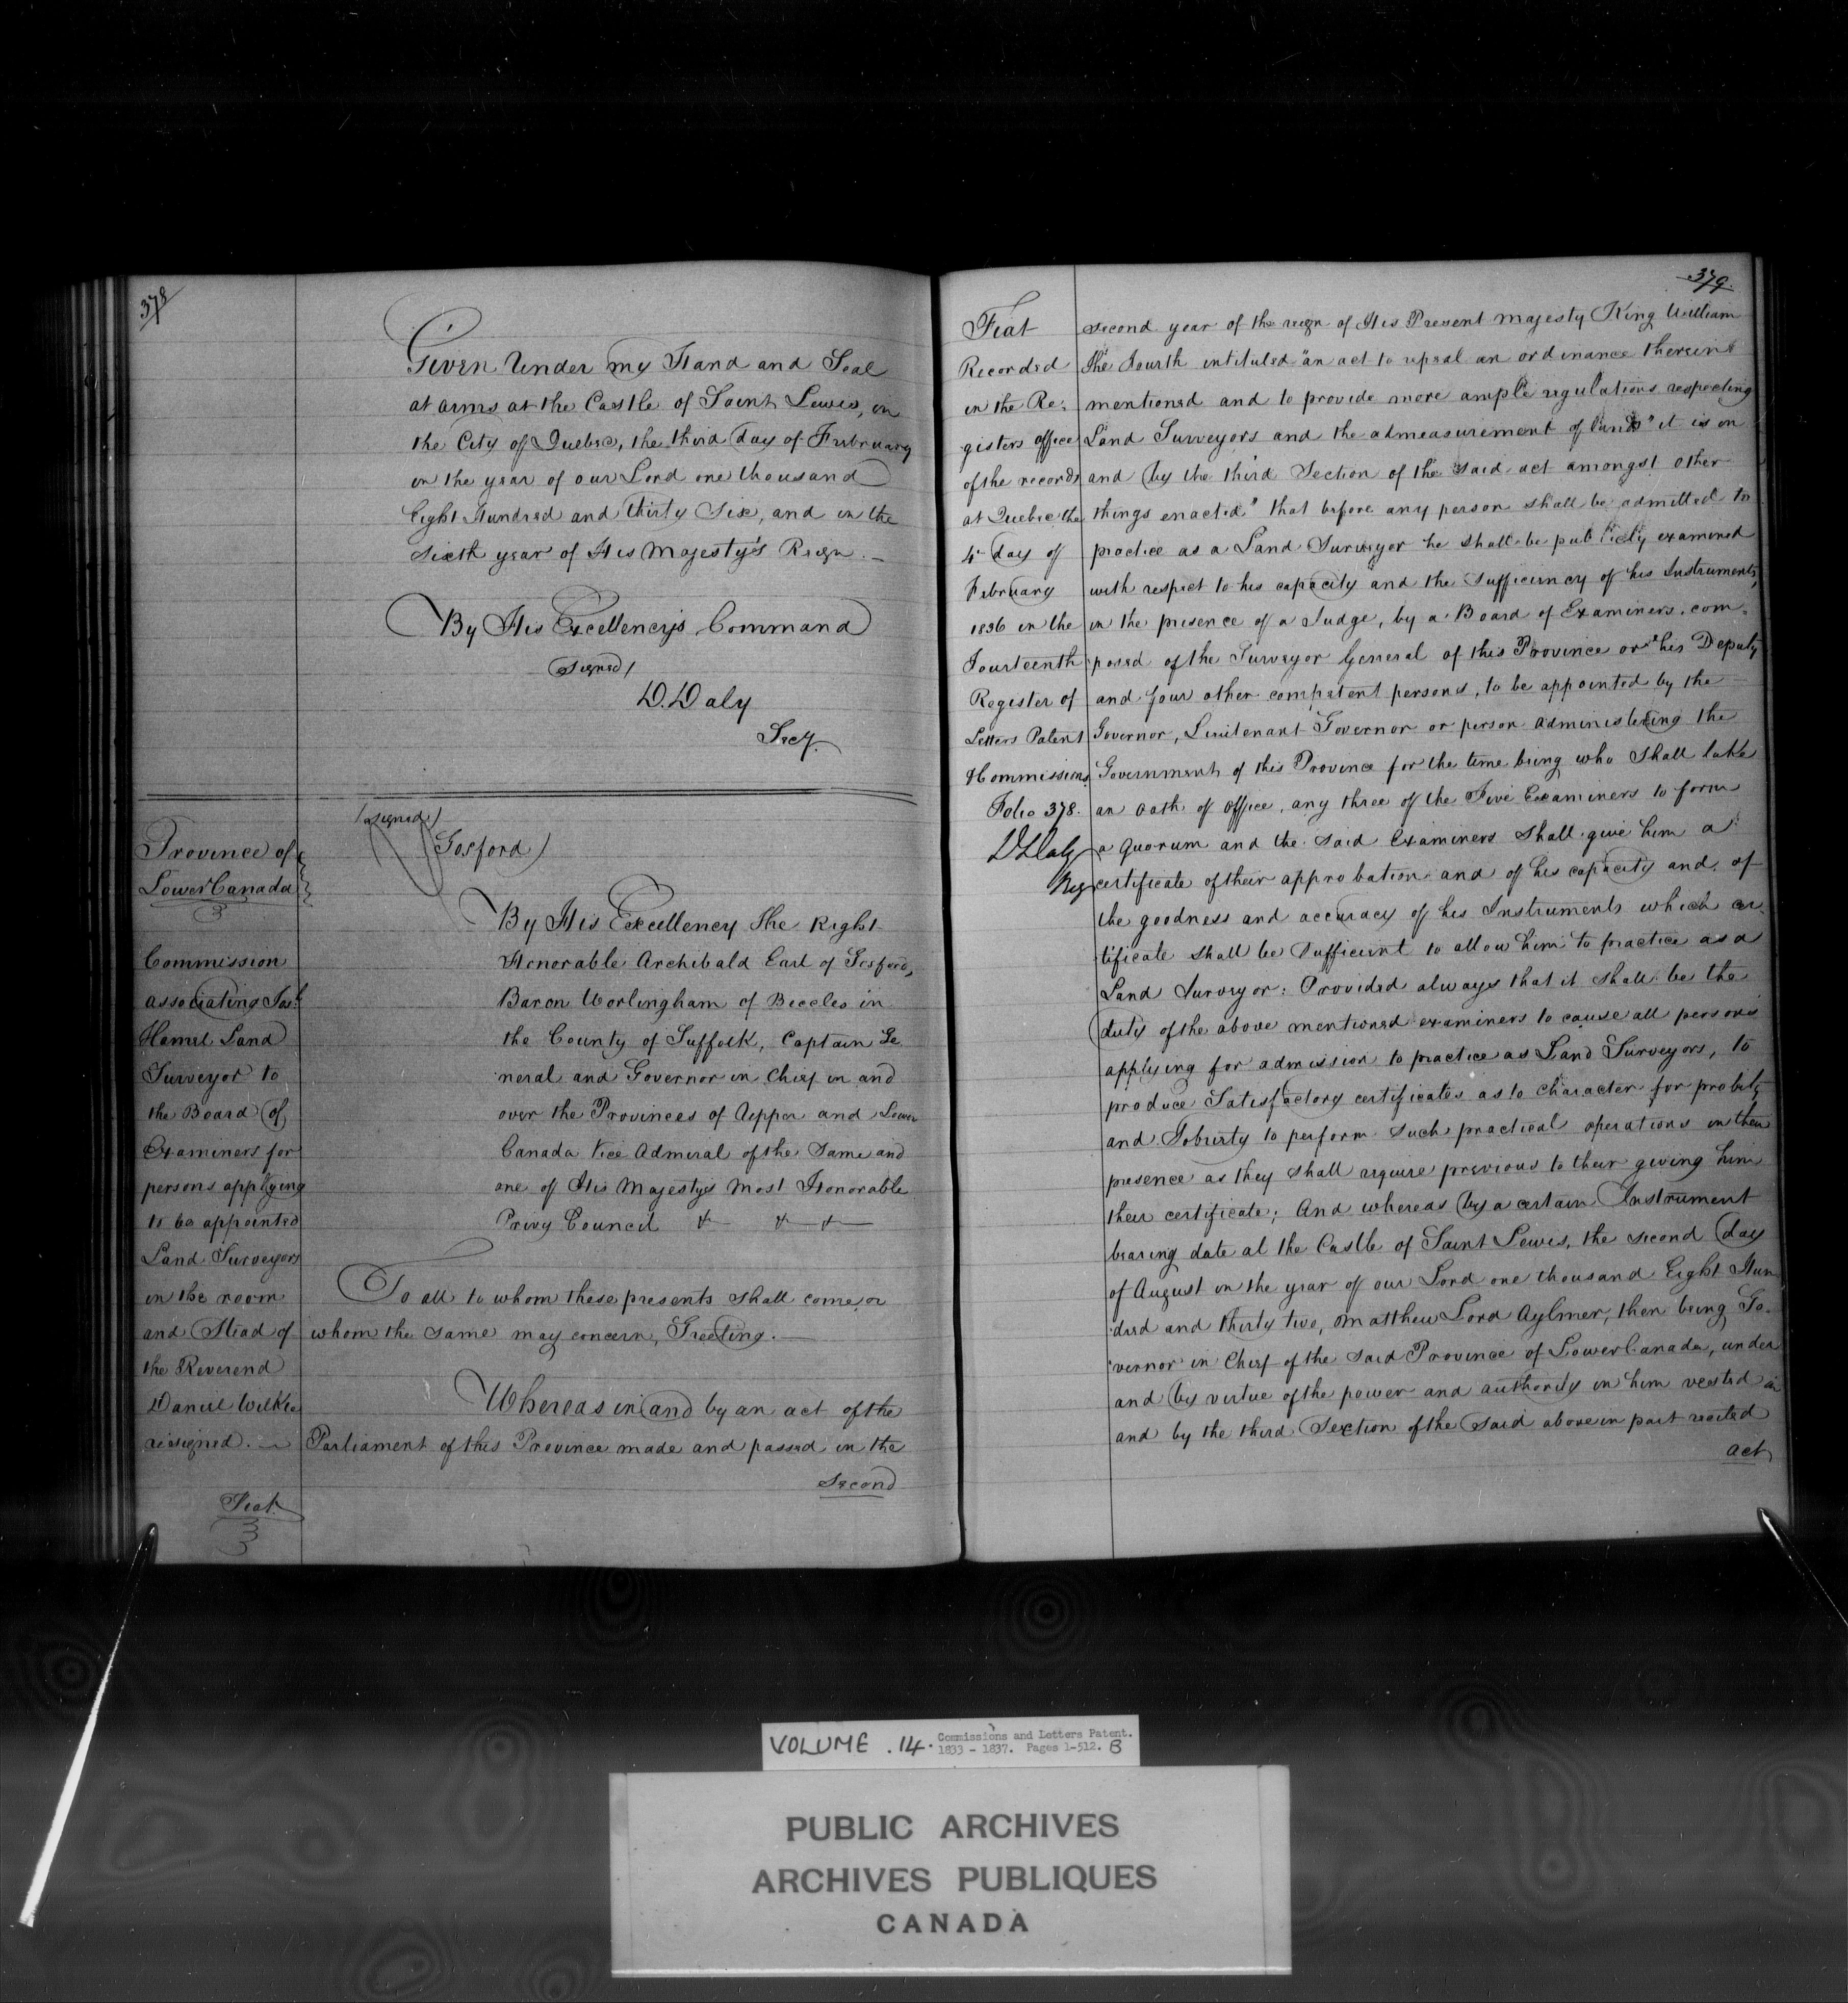 378
Given Under my Hand and Seal
at arms at the Castle of Saint Lewis, in
the City of Quebec, the third day of February
in the year of our Lord one thousand
Eight Hundred and thirty Six, and in the
Sixth year of His Majesty's Reign. —
By His Excellency's Command
(Signed)
D. Daly
Secy.
(Signed)
Gosford)
Province of
Lower Canada
Commission
associating Josh
Hamel Land
Surveyor to
the Board of
Examiners for
persons applying
to be appointed
Land Surveyors
in the room
and Stead of
the Reverend
Daniel Wilkie
resigned. —
Fiat.
By His Excellency The Right
Honorable Archibald Earl of Gosford,
Baron Worlingham of Beccles in
the County of Suffolk, Captain Ge
neral and Governor in Chief in and
over the Provinces of Upper and Lower
Canada Vice Admiral of the Same and
one of His Majesty's Most Honorable
Privy Council & & &
To all to whom these presents shall come or
whom the same may concern, Greeting. —
Whereas in and by an act of the
Parliament of this Province made and passed in the
Second
379.
Fiat
Recorded
in the Re:
gisters office
of the records
at Quebec the
4th day of
February
1836 in the
Fourteenth
Register of
Letters Patent
& Commissions
Folio 378.
D Daly
Reg
second year of the reign of His Present majesty King William
the Fourth intituled "an act to repeal an ordinance therein
mentioned and to provide more ample regulations respecting
Land Surveyors and the admeasurement of lands" it is in
and by the third Section of the said act amongst other
things enacted" that before any person shall be admitted to
practice as a Land Surveyor he shall be publicly examined
with respect to his capacity and the sufficiency of his Instruments,
in the presence of a Judge, by a Board of Examiners, com-
posed of the Surveyor General of this Province or his Deputy
and four other competent persons, to be appointed by the
Governor, Lieutenant Governor or person administering the
Government of this Province for the time being who shall take
an oath of office, any three of the Five Examiners to form
a Quorum and the said Examiners shall give him a
certificate of their approbation and of his capacity and of
the goodness and accuracy of his Instruments which cer
tificate shall be sufficient to allow him to practice as a
Land Surveyor: Provided always that it shall be the
duty of the above mentioned examiners to cause all persons
applying for admission to practice as Land Surveyors, to
produce Satisfactory certificates as to character for probity
and Sobriety to perform such practical operations in their
presence as they shall require previous to their giving him
their certificate; And whereas by a certain Instrument
bearing date at the Castle of Saint Lewis, the second day
of August in the year of our Lord one thousand Eight Hun
dred and thirty two, Matthew Lord Aylmer, then being Go-
vernor in Chief of the said Province of Lower Canada, under
and by virtue of the power and authority in him vested in
and by the third Section of the Said above in part recited
act
VOLUME .14. Commissions and Letters Patent.
1833 - 1837. Pages 1-512. B
PUBLIC ARCHIVES
ARCHIVES PUBLIQUES
CANADA